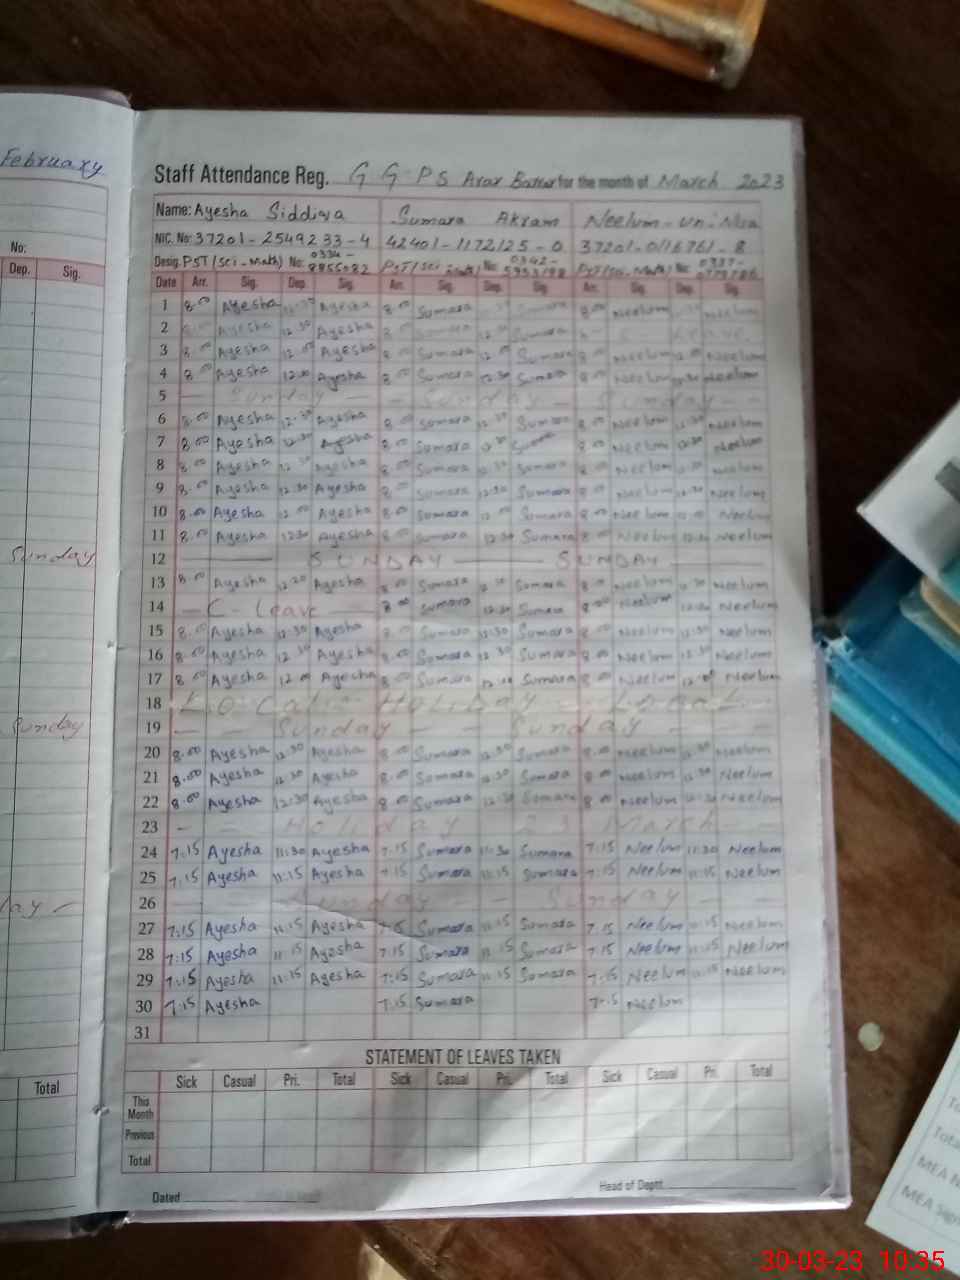 February
Staff Attendance Reg. G G P S Arar for the month of March 2023
Name: Ayesha Siddiqa Sumara Akram Neelum-un-Nisa
NIC. No: 37201-2549233-4 42401-1172125-0 37201-
Desig. PST (Sci-Math) No: PST (Sci-Math) No: 0342- PST (Sci-Math) No:
No:
Dep. Sig.
Date Arr. Sig. Dep. Sig. Arr. Sig. Dep. Sig. Arr. Sig. Dep. Sig.
1 8.00 Ayesha Ayesha 8.00 Sumara Sumara 8.00 Neelum Neelum
2 Ayesha 12.30 Ayesha 8.00 Sumara 12.30 Sumara Leave
3 8.00 Ayesha 12.00 Ayesha 8.00 Sumara 12.00 Sumara 8.00 Neelum 12.00 Neelum
4 8.00 Ayesha 12.30 Ayesha 8.00 Sumara 12.30 Sumara 8.00 Neelum 12.30 Neelum
5 — Sunday — — Sunday — Sunday — —
6 8.00 Ayesha 12.30 Ayesha 8.00 Sumara 12.30 Sumara 8.00 Neelum 12.30 Neelum
7 8.00 Ayesha 12.30 Ayesha 8.00 Sumara 12.30 Sumara 8.00 Neelum 12.30 Neelum
8 8.00 Ayesha 12.30 Ayesha 8.00 Sumara 12.30 Sumara 8.00 Neelum 12.30 Neelum
9 8.00 Ayesha 12.30 Ayesha 8.00 Sumara 12.30 Sumara 8.00 Neelum 12.30 Neelum
10 8.00 Ayesha 12.00 Ayesha 8.00 Sumara 12.00 Sumara 8.00 Neelum 12.00 Neelum
11 8.00 Ayesha 12.30 Ayesha 8.00 Sumara 12.30 Sumara 8.00 Neelum 12.30 Neelum
Sunday
12 — SUNDAY — SUNDAY —
13 8.00 Ayesha 12.30 Ayesha 8.00 Sumara 12.30 Sumara 8.00 Neelum 12.30 Neelum
14 — C-Leave — 8.00 Sumara 12.30 Sumara 8.00 Neelum 12.30 Neelum
15 8.00 Ayesha 12.30 Ayesha 8.00 Sumara 12.30 Sumara 8.00 Neelum 12.30 Neelum
16 8.00 Ayesha 12.30 Ayesha 8.00 Sumara 12.30 Sumara 8.00 Neelum 12.30 Neelum
17 8.00 Ayesha 12.00 Ayesha 8.00 Sumara 12.00 Sumara 8.00 Neelum 12.00 Neelum
18 Local — Holiday — Local —
Sunday
19 — — Sunday — — Sunday — —
20 8.00 Ayesha 12.30 Ayesha 8.00 Sumara 12.30 Sumara 8.00 Neelum 12.30 Neelum
21 8.00 Ayesha 12.30 Ayesha 8.00 Sumara 12.30 Sumara 8.00 Neelum 12.30 Neelum
22 8.00 Ayesha 12.30 Ayesha 8.00 Sumara 12.30 Sumara 8.00 Neelum 12.30 Neelum
23 — — Holiday 23 March — —
24 7:15 Ayesha 11:30 Ayesha 7:15 Sumara 11:30 Sumara 7:15 Neelum 11:30 Neelum
25 7:15 Ayesha 11:15 Ayesha 7:15 Sumara 11:15 Sumara 7:15 Neelum 11:15 Neelum
26 — — Sunday — — Sunday — —
27 7:15 Ayesha 11:15 Ayesha 7:15 Sumara 11:15 Sumara 7:15 Neelum 11:15 Neelum
28 7:15 Ayesha 11:15 Ayesha 7:15 Sumara 11:15 Sumara 7:15 Neelum 11:15 Neelum
29 7:15 Ayesha 11:15 Ayesha 7:15 Sumara 11:15 Sumara 7:15 Neelum 11:15 Neelum
30 7:15 Ayesha 7:15 Sumara 7:15 Neelum
31
STATEMENT OF LEAVES TAKEN
Total
Sick Casual Pri. Total Sick Casual Pri. Total Sick Casual Pri. Total
This Month
Previous
Total
Dated
Head of Deptt.
MEA
MEA Sign
30-03-23 10:35